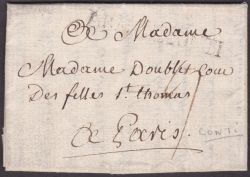 A Madame
Madame Doublet Cour
Des filles St. thomas
A Paris.
CONTI